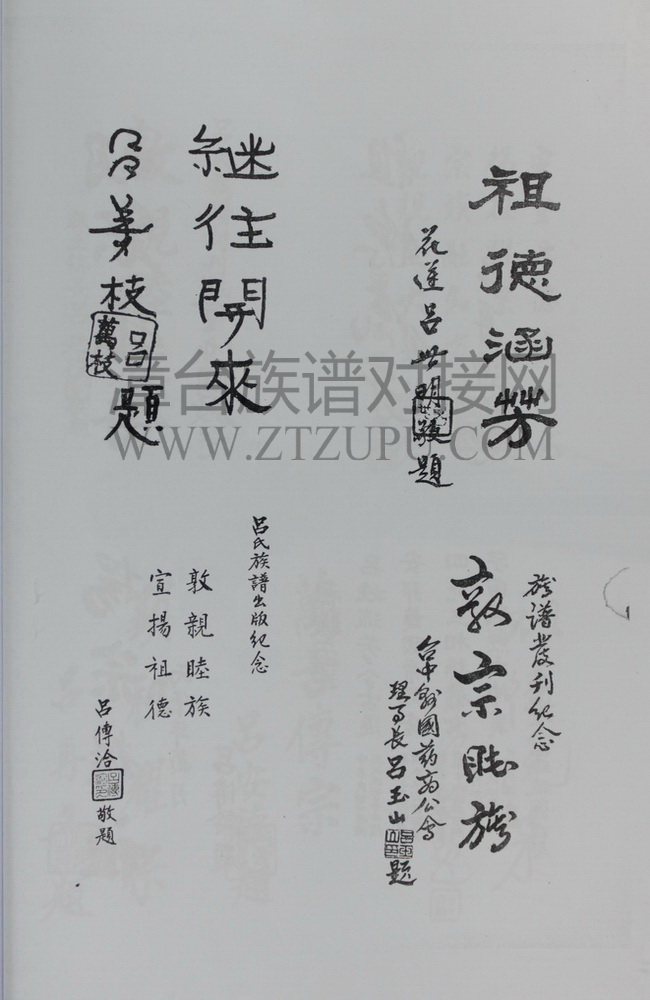 祖德涵芳
花蓮呂世明敬題
继往開來
吕萬枝題
呂萬枝
族譜發刊紀念
敦宗睦族
台中縣國药商公會
理事長呂玉山題
呂氏族譜出版紀念
敦親睦族
宣揚祖德
呂傳洽敬題
漳台族谱对接网
WWW.ZTZUPU.COM